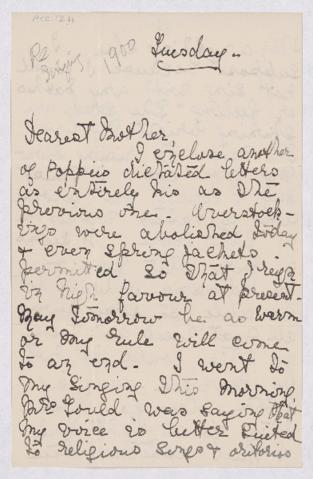 Acc. 1211
Re
Singing
1900
Tuesday -
Dearest Mother,
I enclose another
of Poppie's dictated letters
as entirely his as the
previous one. Overstock-
ings were abolished today
& even spring jackets
permitted so that I reign
in high favour at present.
May tomorrow be as warm
or my rule will come
to an end. I went to
my singing this morning
Mrs Gould was saying that
my voice is better suited
to religious songs & oritorios